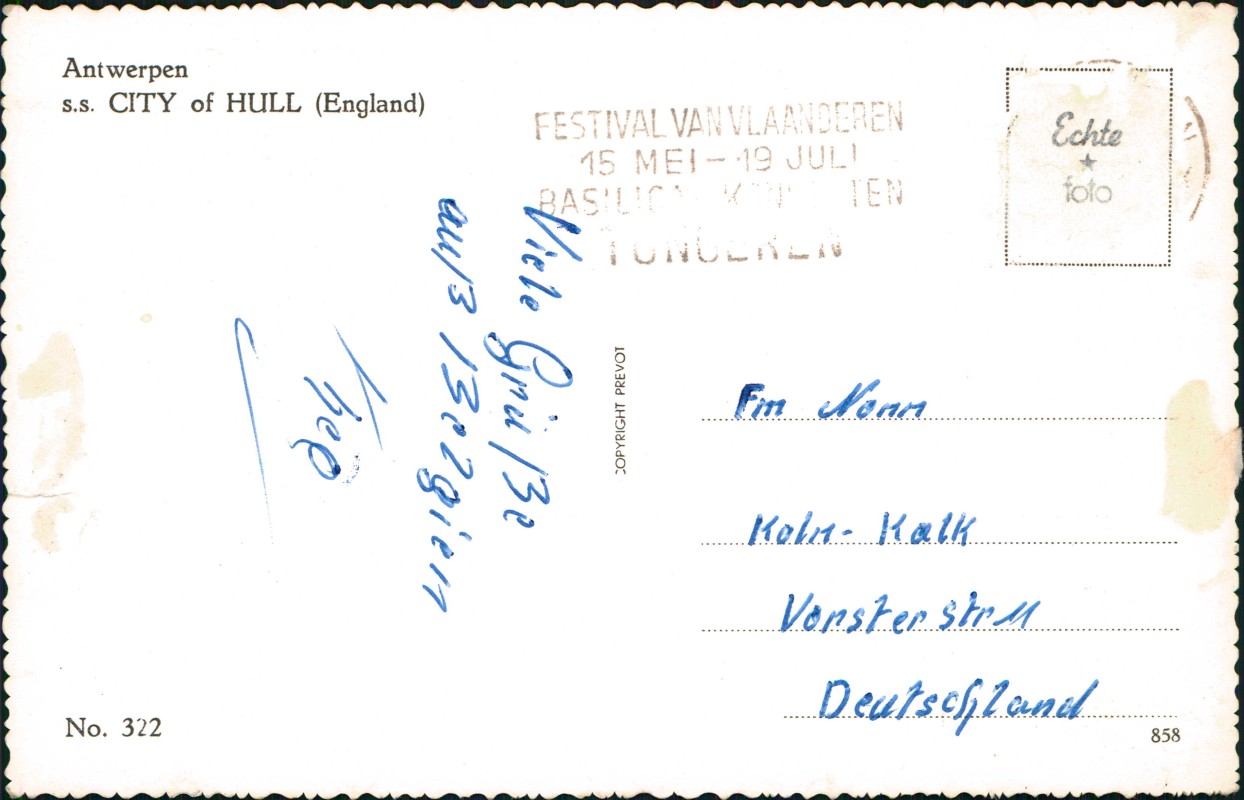 Antwerpen
s.s. CITY of HULL (England)
FESTIVAL VAN VLAANDEREN
15 MEI - 19 JULI
BASILICA
TONGEREN
Echte
foto
Viele Grüße
auß Belgien
COPYRIGHT PREVOT
Fm Nonn
Koln - Kalk
Vorster str 11
Deutschland
No. 322
858